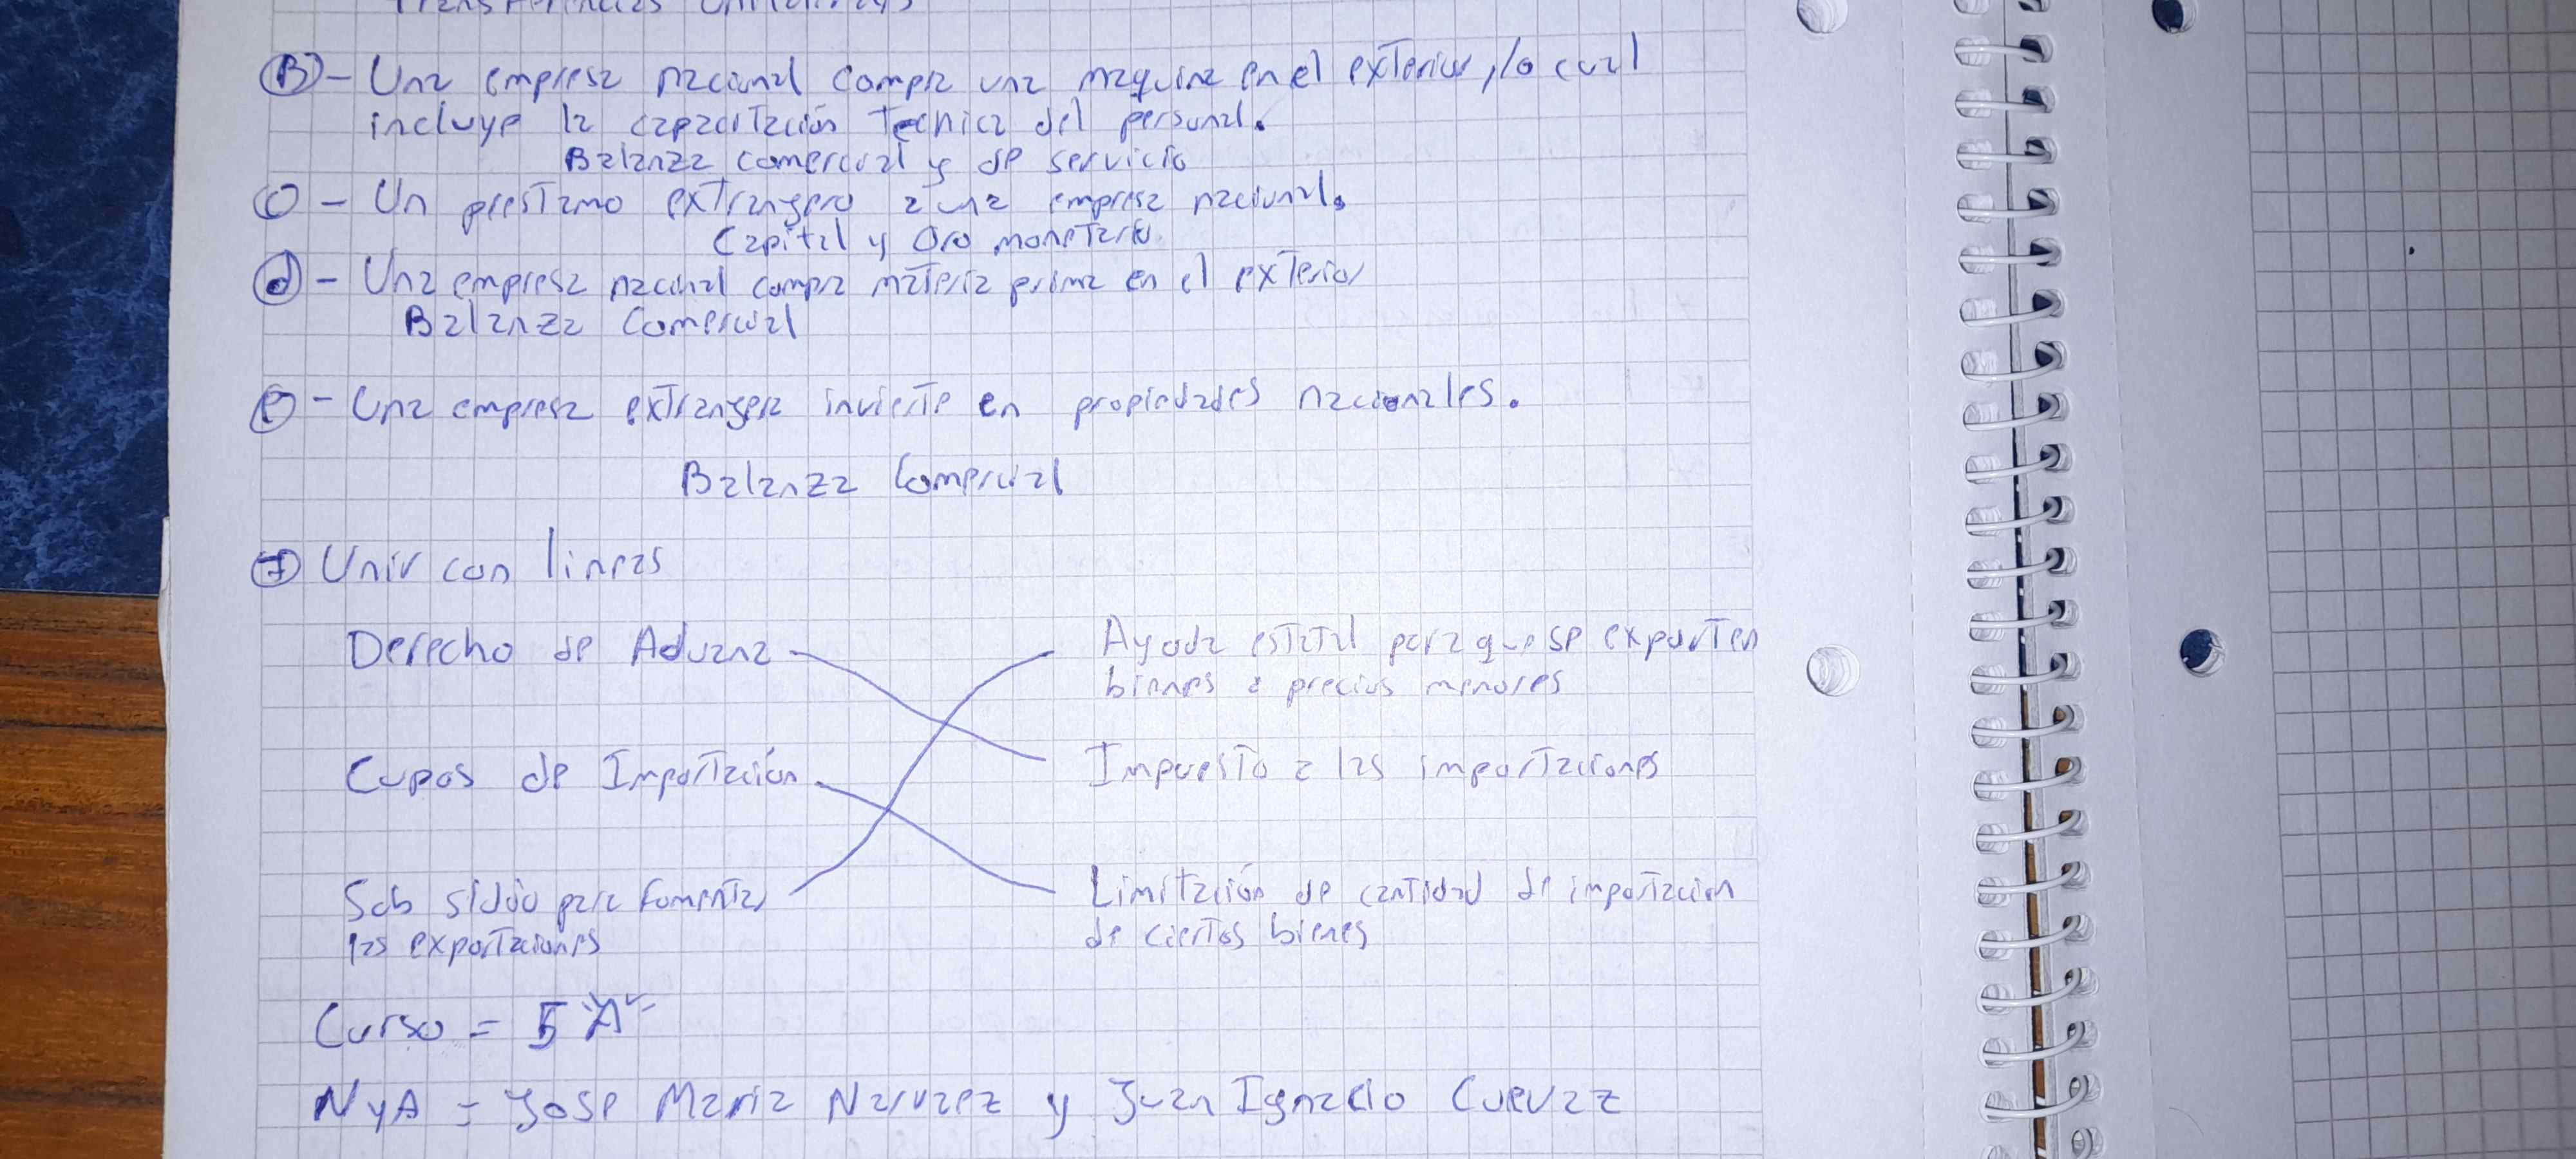 Transferencias Unilaterales
B) - Una empresa nacional compra una maquina en el exterior, lo cual
incluye la capacitación tecnica del personal.
Balanza comercial y de servicio
C) - Un prestamo extrangero a una empresa nacional.
Capital y Oro monetario
d) - Una empresa nacional compra materia prima en el exterior
Balanza Comercial
e) - Una empresa extrangera invierte en propiedades nacionales.
Balanza Comercial
7) Unir con lineas
Derecho de Aduana
Ayuda estatal para que se exporten
bienes a precios menores
Cupos de Importación
Impuesto a las importaciones
Sub sidio para fomentar
las exportaciones
Limitación de cantidad de importacion
de ciertos bienes
Curso = 5 "A"
NyA = Jose Maria Narvaez y Juan Ignacio Cuevaz